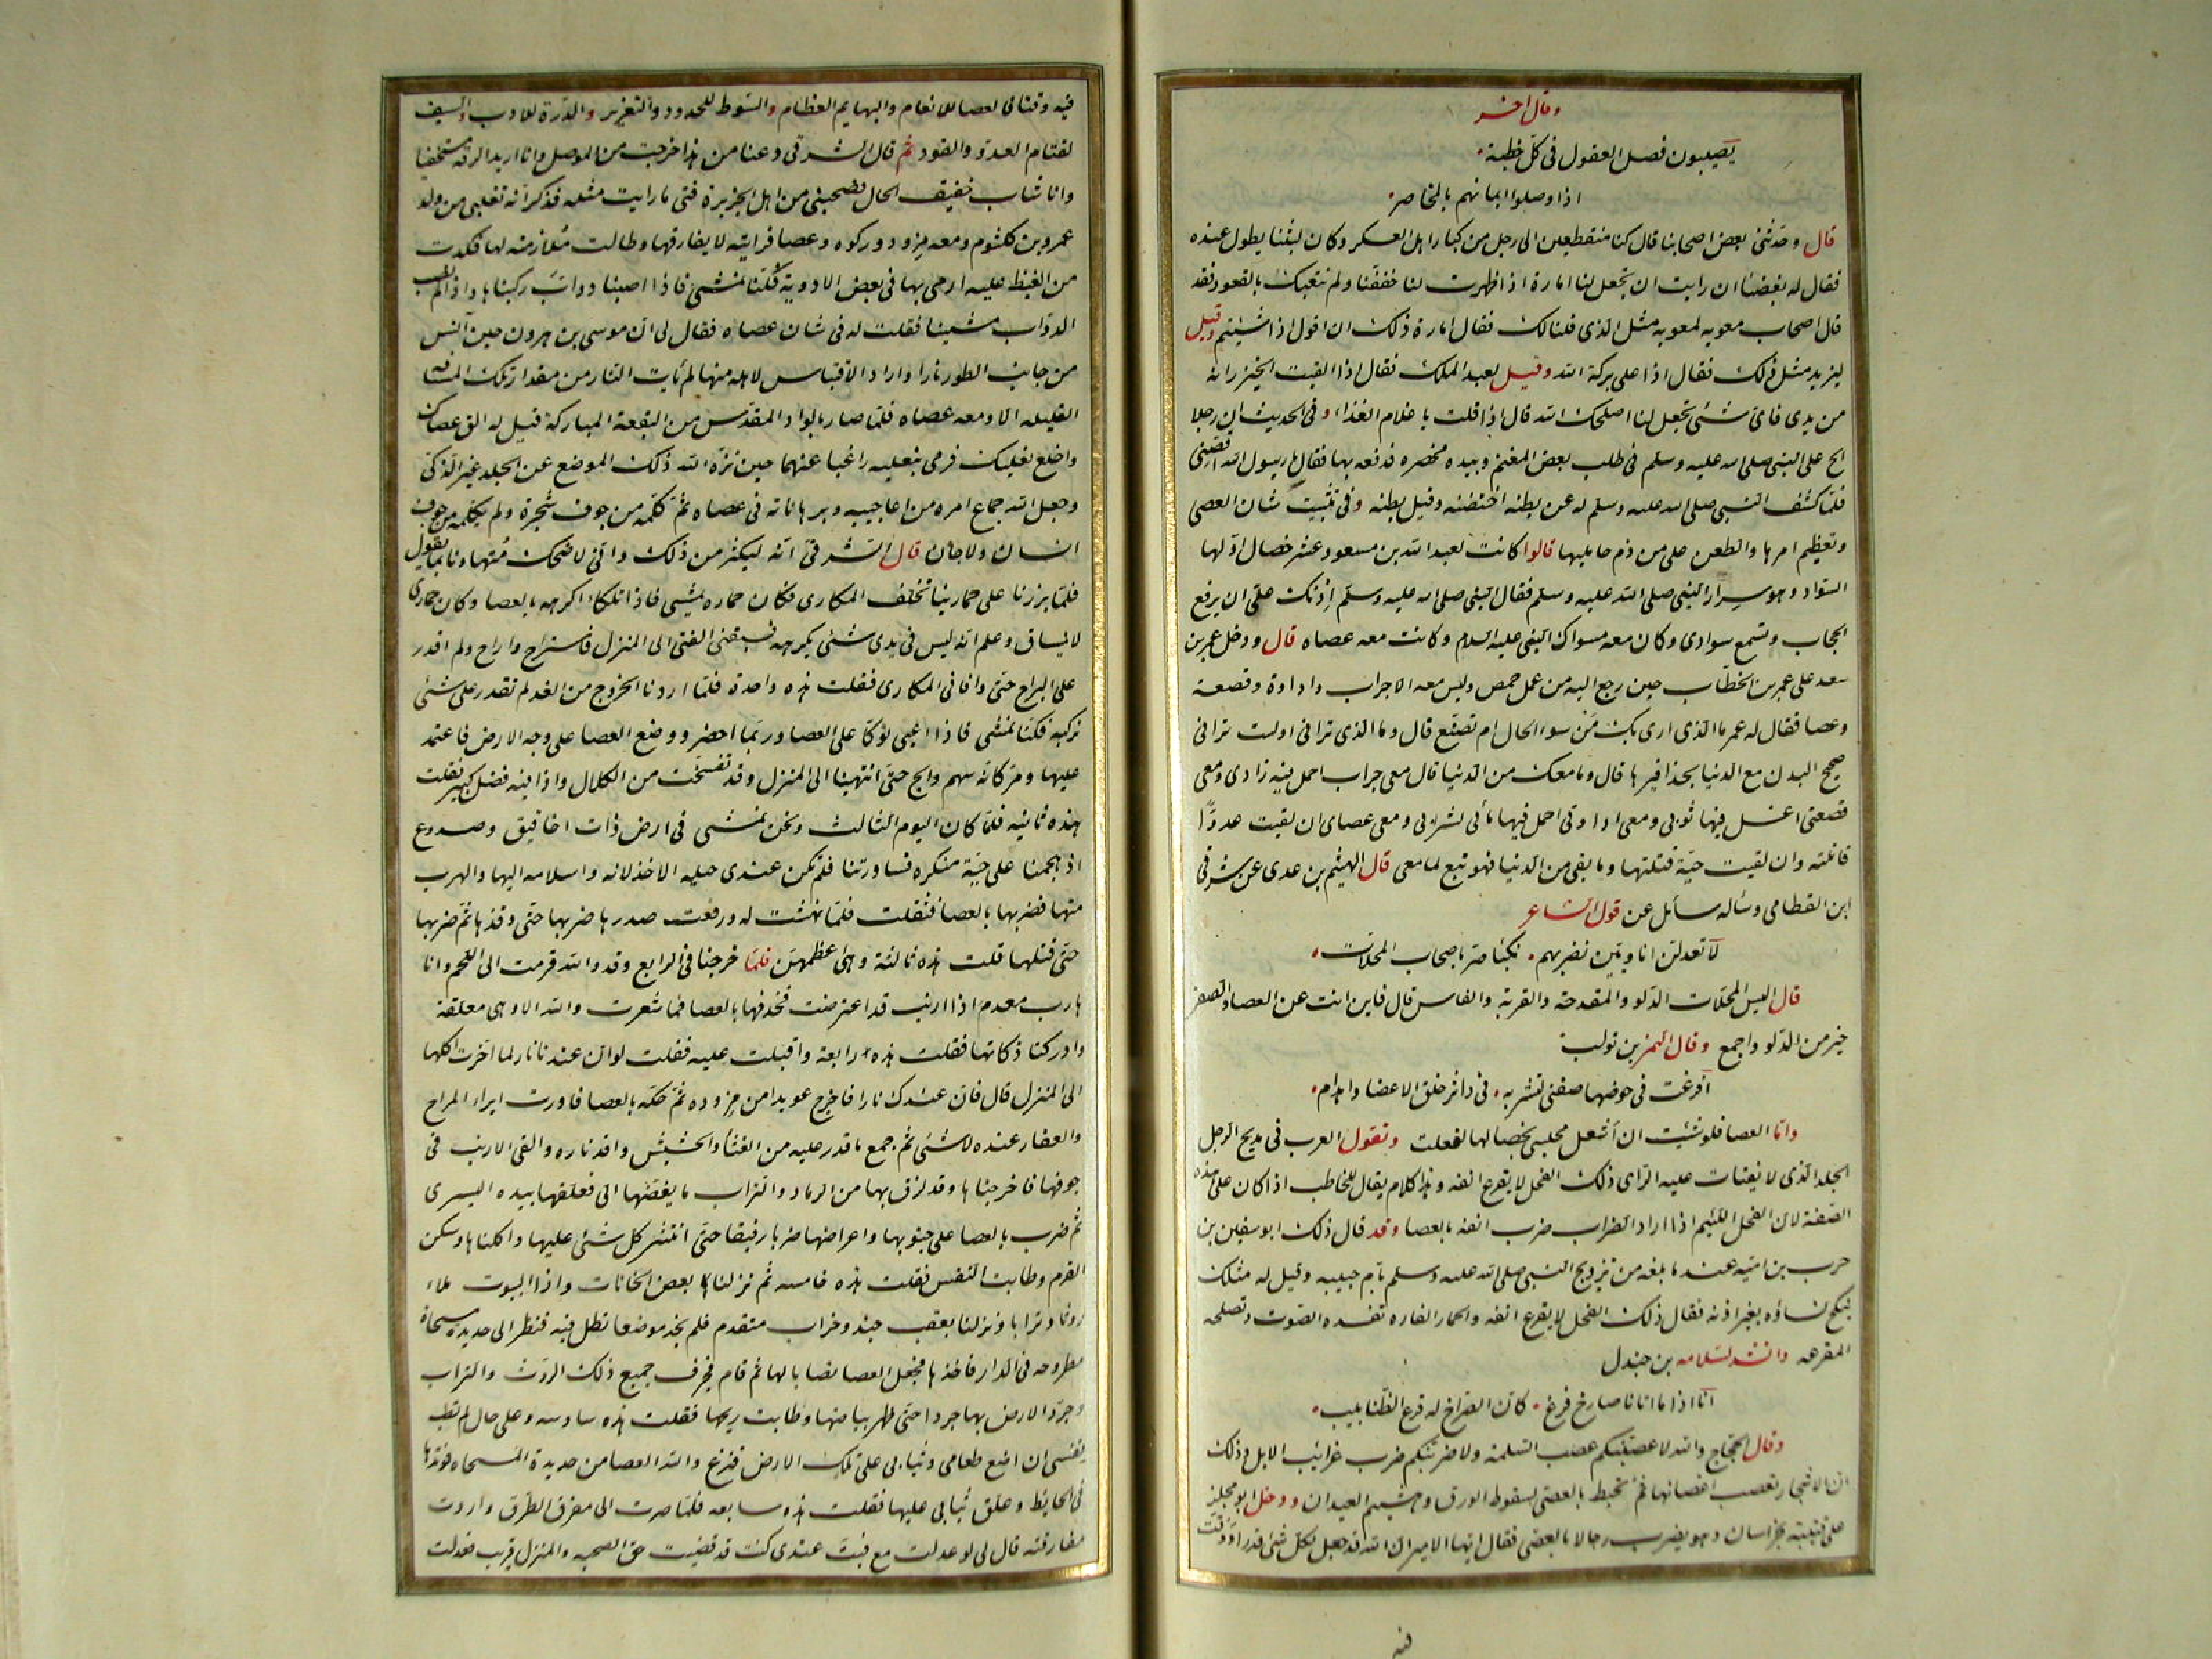 وقال اخر
يصيبون فصل القول فى كل خطبة
اذا وصلوا ايمانهم بالمخاصر
قال وحدثنى بعض اصحابنا قال كنا منقطعين الى رجل من كبار اهل العسكر وكان لبثنا يطول عنده
فقال له بعضنا ان رايت ان تجعل لنا امارة اذا ظهرت لنا خففنا ولم نتعبك بالقعود فقد
قال اصحاب معويه لمعويه مثل الذى قلنا لك فقال امارة ذلك ان اقول اذا شئتم وقيل
ليزيد مثل ذلك فقال اذا على بركة الله وقيل لعبد الملك فقال اذا القيت الخيزرانه
من يدى فاى شئ تجعل لنا اصلحك الله قال اذا قلت يا غلام الغذاء وفى الحديث ان رجلا
الح على النبى صلى الله عليه وسلم فى طلب بعض المغنم وبيده مخصره فدفعه بها فقال يا رسول الله اقصنى
فلما كشف النبى صلى الله عليه وسلم له عن بطنه احتضنه وقبل بطنه وفى تثبيت شان العصى
وتعظيم امرها والطعن على من ذم حامليها قالوا كانت لعبد الله بن مسعود عشر خصال اولها
السواد وهو سرار النبى صلى الله عليه وسلم فقال النبى صلى الله عليه وسلم اذنك على ان يرفع
الحجاب وتسمع سوادى وكان معه مسواك النبى عليه السلم وكانت معه عصاه قال ودخل عمير بن
سعد على عمر بن الخطاب حين رجع اليه من عمل حمص وليس معه الا جراب واداوة وقصعة
وعصا فقال له عمر ما الذى ارى بك من سوء الحال ام تصنع قال وما الذى ترانى اولست ترانى
صحيح البدن مع الدنيا بحذافيرها قال وما معك من الدنيا قال معى جراب احمل فيه زادى ومعى
قصعتى اغسل فيها ثوبى ومعى اداوتى احمل فيها مائى لشرابى ومعى عصاى ان لقيت عدوا
قاتلته وان لقيت حية قتلتها وما بقى من الدنيا فهو تبع لما معى قال الهيثم بن عدى عن شرقى
ابن القطامى وساله سائل عن قول الشاعر
لا تعدلن اتاويين تضربهم نكباء صر باصحاب المحلات
قال اليس المحلات الدلو والمقدحة والقربة والفاس قال فاين انت عن العصا والصفن
خير من الدلو واجمع وقال النمر بن تولب
افرغت فى حوضها صفنى لتشربه فى داثر خلق الاعضاد اهدام
واما العصا فلو شئت ان اشغل مجلسى بخصالها لفعلت وتقول العرب فى مديح الرجل
الجلد الذى لا يفتات عليه الراى ذلك الفحل لا يقرع انفه وهذا كلام يقال للخاطب اذا كان على هذه
الصفة لان الفحل اللئيم اذا اراد الضراب ضرب انفه بالعصا وقد قال ذلك ابو سفين بن
حرب بن امية عند ما بلغه من تزويج النبى صلى الله عليه وسلم بام حبيبه وقيل له مثلك
ينكح نساؤه بغير اذنه فقال ذلك الفحل لا يقرع انفه والحمار الفاره تفسده الصوت وتصلحه
المقرعه وانشد لسلامه بن جندل
انا اذا ما اتانا صارخ فزع كان الصراخ له قرع الظنابيب
وقال الحجاج والله لاعصبنكم عصب السلمة ولاضربنكم ضرب غرائب الابل وذلك
ان الاشجار تعصب اغصانها ثم تخبط بالعصى لسقوط الورق وهشيم العيدان ودخل ابو مجلز
على قتيبة بخراسان وهو يضرب رجالا بالعصى فقال ايها الامير ان الله قد جعل لكل شئ قدرا ووقت
فيه
فيه وقتا فالعصا للانعام والبهايم العظام والسوط للحدود والتعزير والدرة للادب والسيف
لقتام العدو والقود ثم قال الشرقى دعنا من هذا خرجت من الموصل وانا اريد الرقه مستخفيا
وانا شاب خفيف الحال فصحبنى من اهل الجزيرة فتى ما رايت مثله فذكر انه تغلبى من ولد
عمرو بن كلثوم ومعه مزود وركوه وعصا فرايته لا يفارقها وطالت ملازمته لها فكدت
من الغيظ عليه ارمى بها فى بعض الاودية فكنا نمشى فاذا اصبنا دواب ركبنا ها واذا لم نصب
الدواب مشينا فقلت له فى شان عصاه فقال لى ان موسى بن هرون حين آنس
من جانب الطور نارا واراد الاقتباس لاهله منها لم يات النار من مقدار تلك المسافه
القليله الا ومعه عصاه فلما صار بالواد المقدس من البقعة المباركة قيل له الق عصاك
واخلع نعليك فرمى بنعليه راغبا عنهما حين نزه الله ذلك الموضع عن الجلد غير الذكى
وجعل الله جماع امره من اعاجيبه وبرهاناته فى عصاه ثم كلمه من جوف شجرة ولم يكلمه من جوف
انسان ولا جان قال الشرقى انه ليكثر من ذلك وانى لاضحك متهاونا بما يقول
فلما برزنا على حمارينا تخلف المكارى فكان حماره يمشى فاذا تلكا اكرهه بالعصا وكان حمارى
لا ينساق وعلم انه ليس فى يدى شئ يكرهه فسبقنى الفتى الى المنزل فاستراح واراح ولم اقدر
على البراح حتى وافانى المكارى فقلت هذه واحدة فلما اردنا الخروج من الغد لم نقدر على شئ
نركبه فكنا نمشى فاذا اعيى توكا على العصا وربما احضر ووضع العصا على وجه الارض فاعتمد
عليها ومر كانه سهم والج حتى انتهينا الى المنزل وقد تفسخت من الكلال واذا فيه فضل كبير فقلت
هذه ثانيه فلما كان اليوم الثالث ونحن نمشى فى ارض ذات اخاقيق وصدوع
اذ هجمنا على حية منكره فساورتنا فلم تكن عندى حيله الا خذلانه واسلامه اليها والهرب
منها فضربها بالعصا فثقلت فلما بهشت له ورفعت صدرها ضربها حتى وقذها ثم ضربها
حتى قتلها قلت هذه ثالثة وهى اعظمهن فلما خرجنا فى الرابع وقد والله قرمت الى اللحم وانا
هارب معدم اذا ارنب قد اعترضت فحذفها بالعصا فما شعرت والله الا وهى معلقة
وادركنا ذكاتها فقلت هذه رابعة واقبلت عليه فقلت لو ان عندنا نارا لما اخرت اكلها
الى المنزل قال فان عندك نارا فاخرج عويدا من مزوده ثم حكه بالعصا فاورت ايراء المرخ
والعفار عنده لا شئ ثم جمع ما قدر عليه من الغثاء والحشيش واوقد ناره والقى الارنب فى
جوفها فاخرجناها وقد لزق بها من الرماد والتراب ما يغضها الى فعلقها بيده اليسرى
ثم ضرب بالعصا على جنوبها واعراضها ضربا رفيقا حتى انتثر كل شئ عليها واكلناها وسكن
القرم وطابت النفس فقلت هذه خامسه ثم نزلنا بعض الخانات واذا البيوت ملاء
روثا وترابا ونزلنا بعقب جند وخراب متقدم فلم نجد موضعا نظل فيه فنظر الى حديدة مسحاة
مطروحه فى الدار فاخذها فجعل العصا نصابا لها ثم قام فجرف جميع ذلك الروث والتراب
وجرد الارض بها جردا حتى ظهر بياضها وطابت ريحها فقلت هذه سادسه وعلى حال لم تطب
نفسى ان اضع طعامى وثيابى على تلك الارض فنزع والله العصا من حديدة المسحاه فوتدها
فى الحايط وعلق ثيابى عليها فقلت هذه سابعه فلما صرت الى مفرق الطرق واردت
مفارقته قال لى لو عدلت مع فبت عندى كنت قد قضيت حق الصحبه والمنزل قريب فعدلت